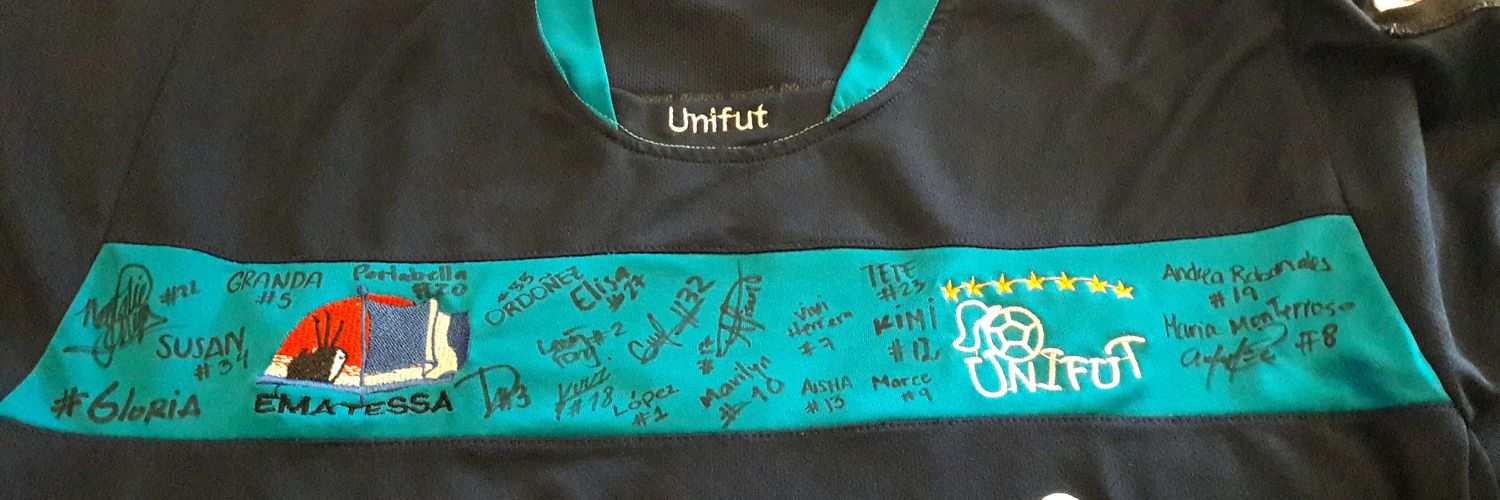 Unifut
#21
GRANDA
#5
Portabella
#20
SUSAN
#34
#GLORIA
EMATESSA
#35
ORDOÑEZ
Elisa
#27
#2
#32
#3
#18
LÓPEZ
#1
Marilyn
#10
Vivi
Herrera
#7
AISHA
#13
TETE
#23
KIMI
#12
Marce
#9
UNIFUT
Andrea Rabanales
#19
Maria Monterroso
#8